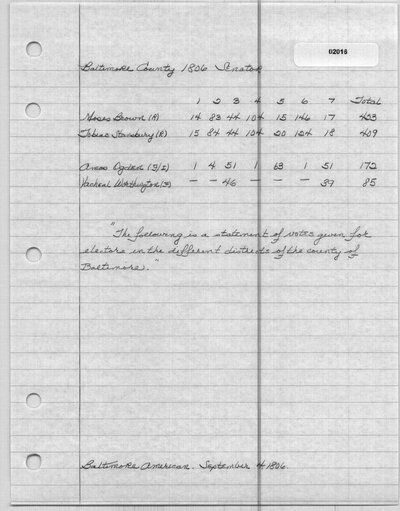 02016
Baltimore County 1806 Senator
1 2 3 4 5 6 7 Total
Moses Brown (R) 14 83 44 104 15 146 17 423
Tobias Stansbury (R) 15 84 44 104 20 124 18 409
Amos Ogden (F/I) 1 4 51 1 63 1 51 172
Vacheal Worthington (F) — — 46 — — — 39 85
"The following is a statement of votes given for
electors in the different districts of the county of
Baltimore."
Baltimore American. September 4 1806.